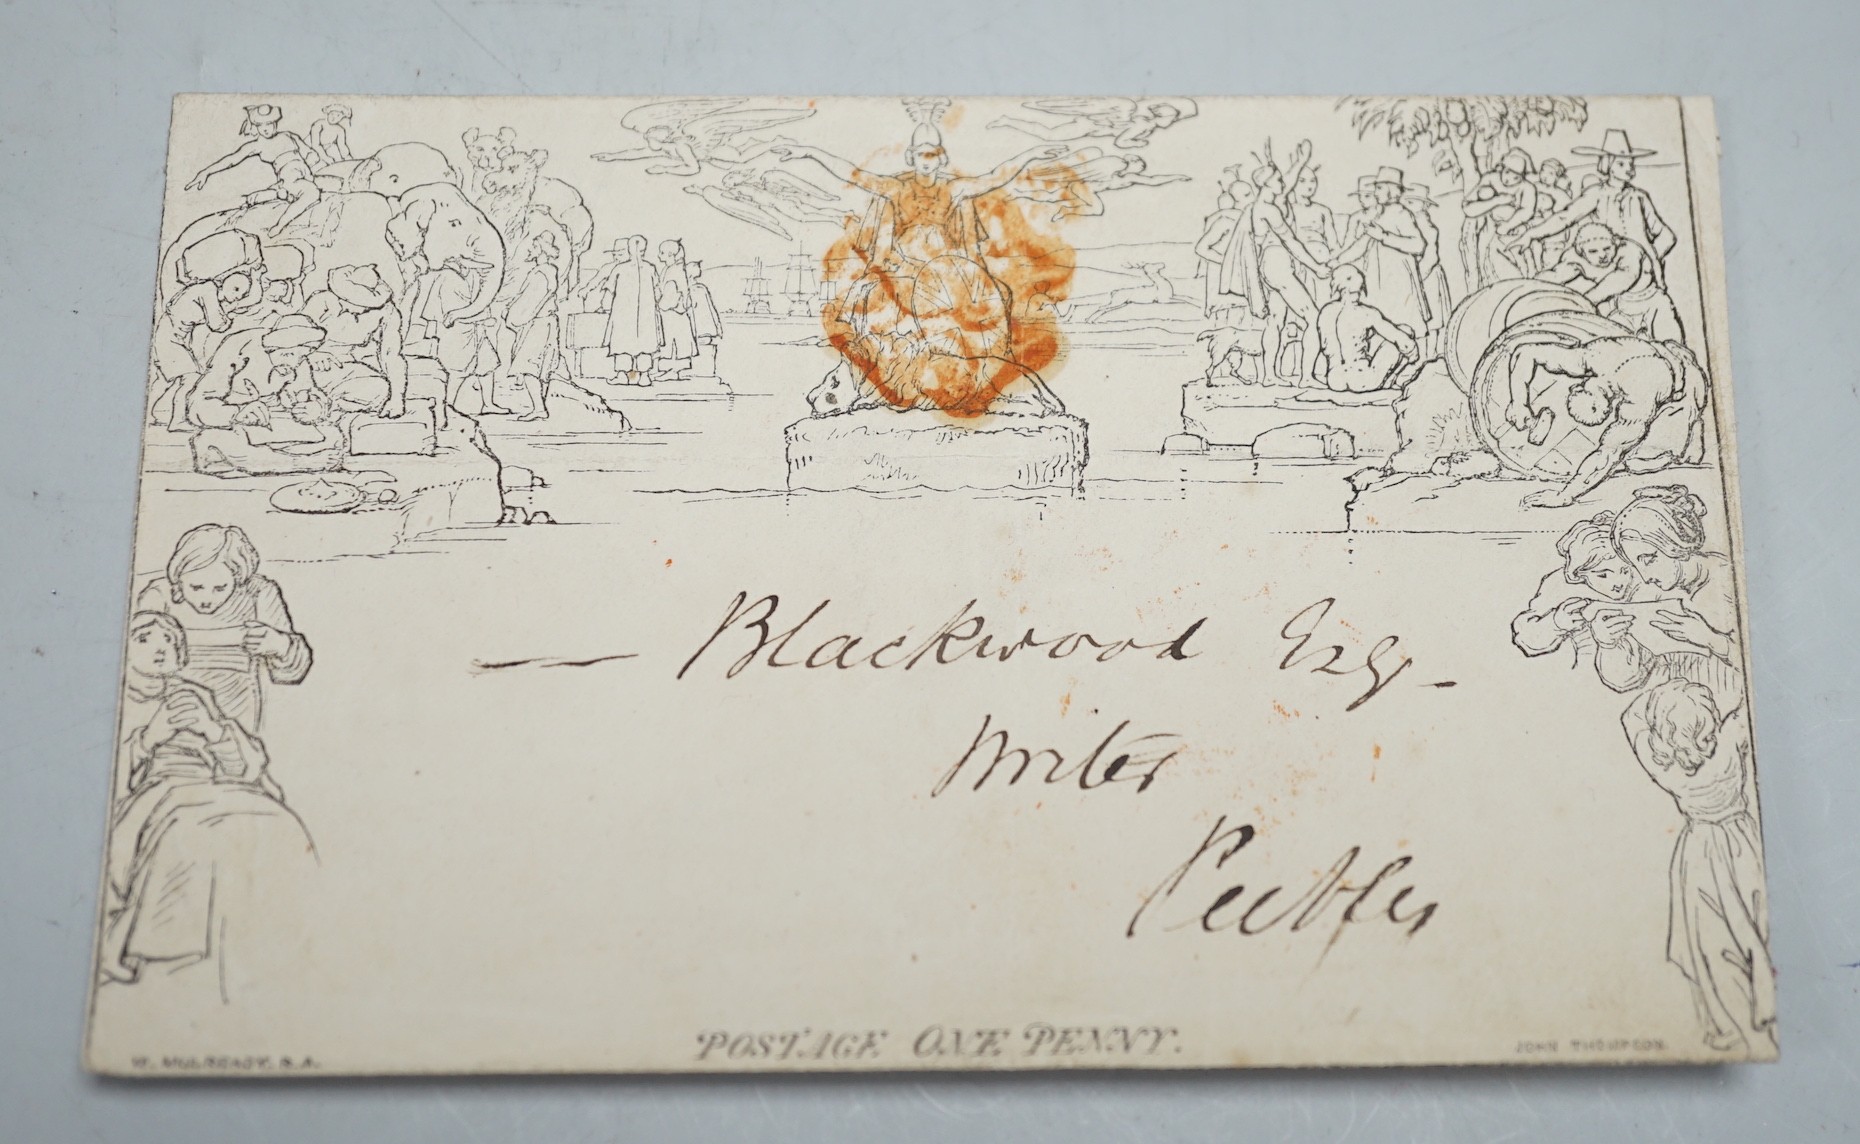 — Blackwood Esq.
Writer
Peebles
POSTAGE ONE PENNY.
W. MULREADY, R.A.
JOHN THOMPSON.